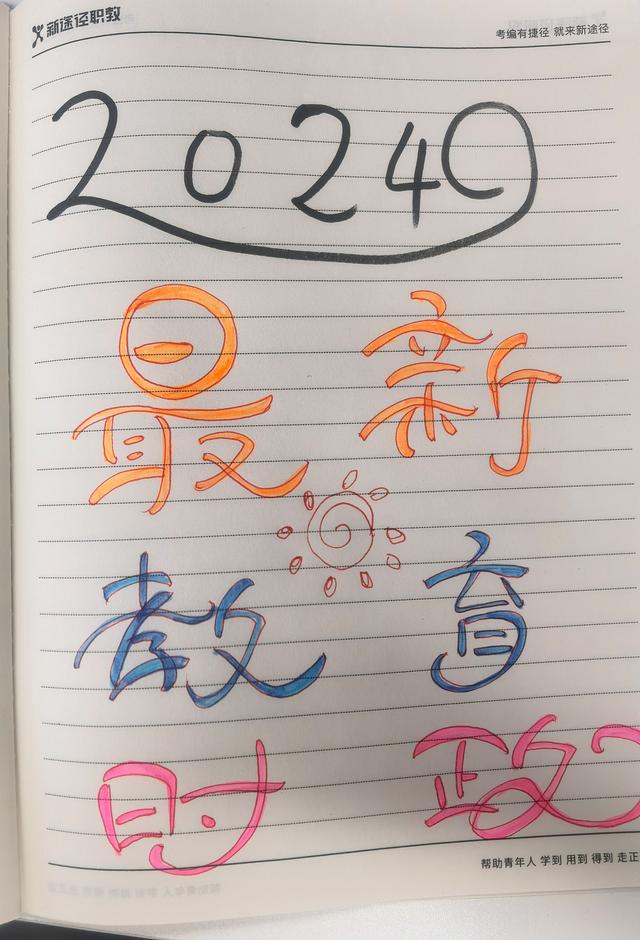 新途径职教
考编有捷径 就来新途径
2024
最新
教育
时政
帮助青年人 学到 用到 得到 走正